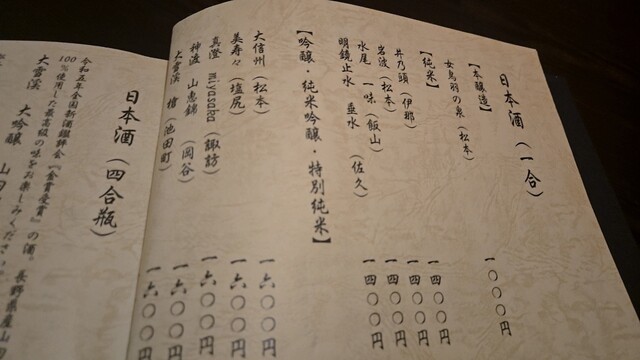 日本酒（一合）
【本醸造】
女鳥羽の泉（松本） 一〇〇〇円
【純米】
井乃頭（伊那） 一四〇〇円
岩波（松本） 一四〇〇円
水尾 一味（飯山） 一四〇〇円
明鏡止水 垂水（佐久） 一四〇〇円
【吟醸・純米吟醸・特別純米】
大信州（松本） 一六〇〇円
美寿々（塩尻） 一六〇〇円
真澄 miyasaka（諏訪） 一六〇〇円
神渡 山恵錦（岡谷） 一六〇〇円
大雪渓 槍（池田町） 一六〇〇円
日本酒（四合瓶）
令和五年全国新酒鑑評会『金賞受賞』の酒。長野県産山田
100％使用した最高級の味をお楽しみくださ
大雪渓 大吟醸 山田